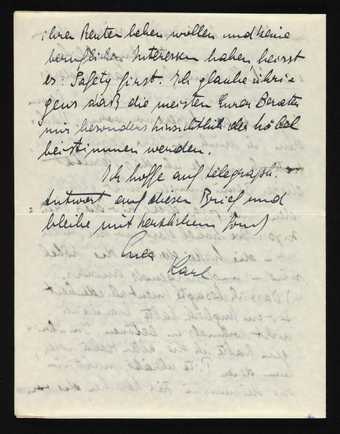 ihren Renten leben wollen und keine
beruflichen Interessen haben heisst
es: Safety first. Ich glaube übri-
gens dass die meisten Eurer Berater
mir besonders hinsichtlich der
beistimmen werden.
Ich hoffe auf telegraph.
Antwort auf diesen Brief und
bleibe mit herzlichem Gruss
Euer
Karl